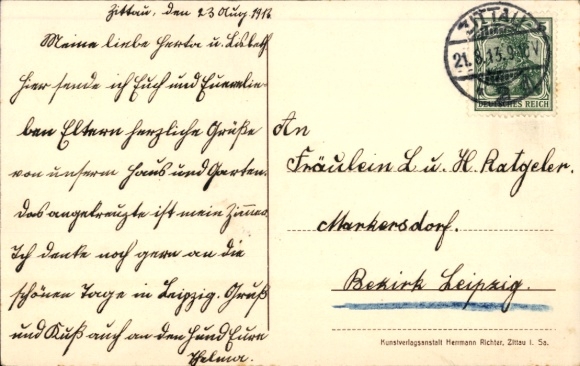 Zittau, den 23 Aug 1913
Meine liebe Herta u. Lisbeth
Hier sende ich Euch und Euern lie
ben Eltern herzliche Grüße
von unserm Haus und Garten.
Das angekreuzte ist mein Zimmer
Ich denke noch gern an die
schönen Tage in Leipzig. Gruß
und Kuß auch an den Hund Eure
Thelma.
ZITTAU
21.8.13.9-10V
DEUTSCHES REICH
An
Fräulein L u. H. Ratgeler.
Markersdorf.
Bezirk Leipzig.
Kunstverlagsanstalt Herrmann Richter, Zittau i. Sa.